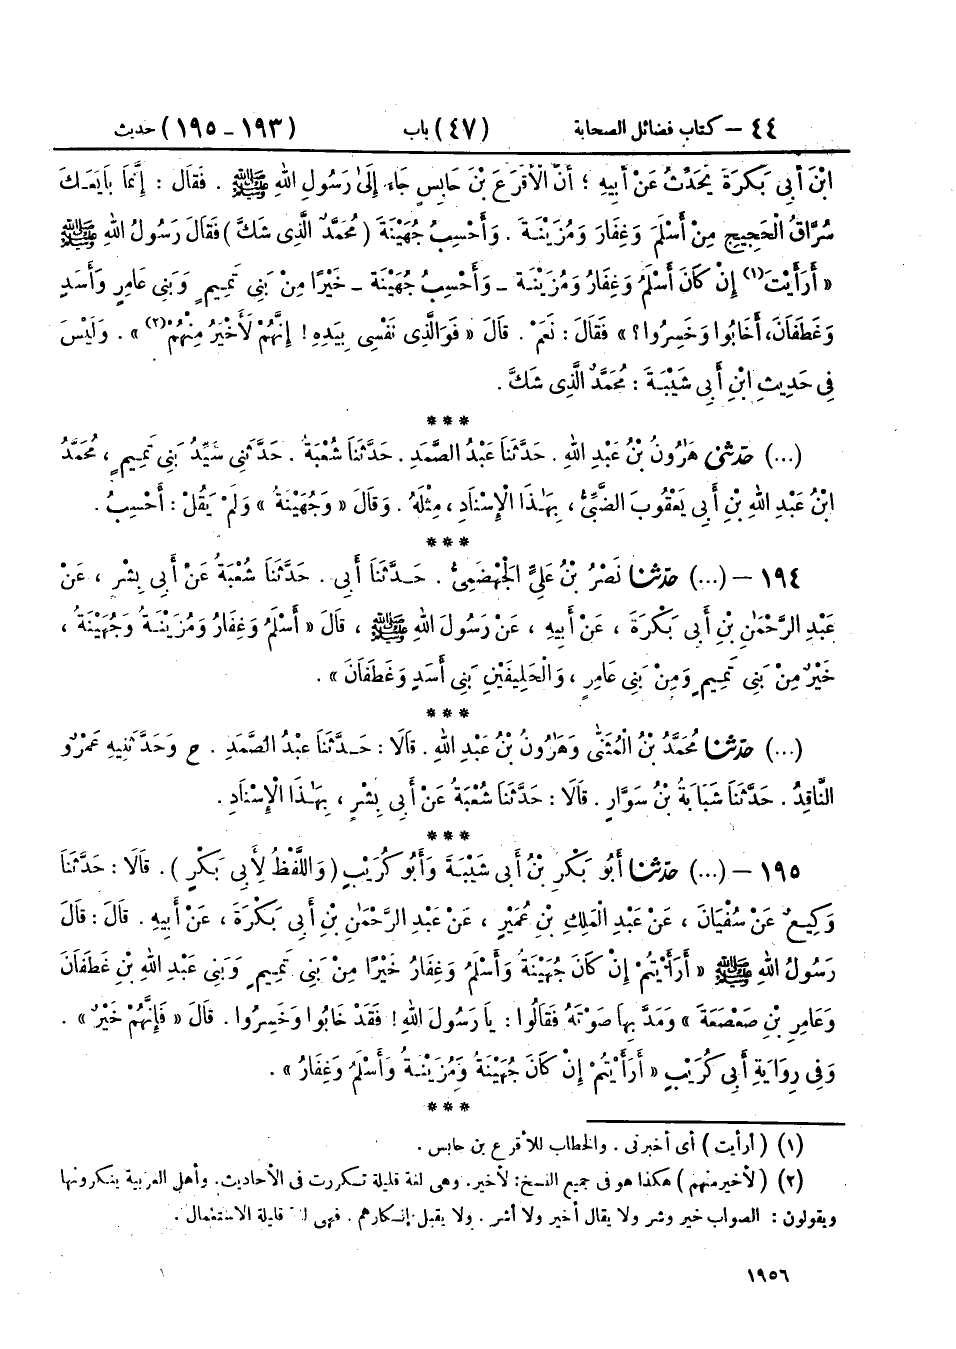 ٤٤ – كتاب فضائل الصحابة (٤٧) باب (١٩٣ – ١٩٥) حديث
ابْنَ أَبِى بَكْرَةَ يُحَدِّثُ عَنْ أَبِيهِ ؛ أَنَّ الْأَقْرَعَ بْنَ حَابِسٍ جَاءَ إِلَىٰ رَسُولِ اللهِ ﷺ . فَقَالَ : إِنَّمَا بَايَعَكَ
سُرَّاقُ الْحَجِيجِ مِنْ أَسْلَمَ وَغِفَارَ وَمُزَيْنَةَ . وَأَحْسِبُ جُهَيْنَةَ (مُحَمَّدٌ الَّذِى شَكَّ) فَقَالَ رَسُولُ اللهِ ﷺ
« أَرَأَيْتَ(١) إِنْ كَانَ أَسْلَمُ وَغِفَارُ وَمُزَيْنَةُ – وَأَحْسِبُ جُهَيْنَةُ – خَيْرًا مِنْ بَنِى تَمِيمٍ وَبَنِى عَامِرٍ وَأَسَدٍ
وَغَطَفَانَ، أَخَابُوا وَخَسِرُوا؟ » فَقَالَ : نَعَمْ . قَالَ « فَوَالَّذِى نَفْسِى بِيَدِهِ ! إِنَّهُمْ لَأَخْيَرُ مِنْهُمْ(٢) » . وَلَيْسَ
فِى حَدِيثِ ابْنِ أَبِى شَيْبَةَ : مُحَمَّدٌ الَّذِى شَكَّ .
***
(...) حَدَّثَنِى هَرُونُ بْنُ عَبْدِ اللهِ . حَدَّثَنَا عَبْدُ الصَّمَدِ . حَدَّثَنَا شُعْبَةُ . حَدَّثَنِى سَيِّدُ بَنِى تَمِيمٍ ، مُحَمَّدُ
ابْنُ عَبْدِ اللهِ بْنِ أَبِى يَعْقُوبَ الضَّبِّىُّ ، بِهَٰذَا الْإِسْنَادِ ، مِثْلَهُ . وَقَالَ « وَجُهَيْنَةُ » وَلَمْ يَقُلْ : أَحْسِبُ .
***
١٩٤ – (...) حَدَّثَنَا نَصْرُ بْنُ عَلِىٍّ الْجَهْضَمِىُّ . حَدَّثَنَا أَبِى . حَدَّثَنَا شُعْبَةُ عَنْ أَبِى بِشْرٍ ، عَنْ
عَبْدِ الرَّحْمَٰنِ بْنِ أَبِى بَكْرَةَ ، عَنْ أَبِيهِ ، عَنْ رَسُولِ اللهِ ﷺ ، قَالَ « أَسْلَمُ وَغِفَارُ وَمُزَيْنَةُ وَجُهَيْنَةُ ،
خَيْرٌ مِنْ بَنِى تَمِيمٍ وَمِنْ بَنِى عَامِرٍ ، وَالْحَلِيفَيْنِ بَنِى أَسَدٍ وَغَطَفَانَ » .
***
(...) حَدَّثَنَا مُحَمَّدُ بْنُ الْمُثَنَّىٰ وَهَرُونُ بْنُ عَبْدِ اللهِ . قَالَا : حَدَّثَنَا عَبْدُ الصَّمَدِ . ح وَحَدَّثَنِيهِ عَمْرٌو
النَّاقِدُ . حَدَّثَنَا شَبَابَةُ بْنُ سَوَّارٍ . قَالَا : حَدَّثَنَا شُعْبَةُ عَنْ أَبِى بِشْرٍ ، بِهَٰذَا الْإِسْنَادِ .
***
١٩٥ – (...) حَدَّثَنَا أَبُو بَكْرِ بْنُ أَبِى شَيْبَةَ وَأَبُو كُرَيْبٍ (وَاللَّفْظُ لِأَبِى بَكْرٍ) . قَالَا : حَدَّثَنَا
وَكِيعٌ عَنْ سُفْيَانَ ، عَنْ عَبْدِ الْمَلِكِ بْنِ عُمَيْرٍ ، عَنْ عَبْدِ الرَّحْمَٰنِ بْنِ أَبِى بَكْرَةَ ، عَنْ أَبِيهِ . قَالَ : قَالَ
رَسُولُ اللهِ ﷺ « أَرَأَيْتُمْ إِنْ كَانَ جُهَيْنَةُ وَأَسْلَمُ وَغِفَارُ خَيْرًا مِنْ بَنِى تَمِيمٍ وَبَنِى عَبْدِ اللهِ بْنِ غَطَفَانَ
وَعَامِرِ بْنِ صَعْصَعَةَ » وَمَدَّ بِهَا صَوْتَهُ فَقَالُوا : يَا رَسُولَ اللهِ ! فَقَدْ خَابُوا وَخَسِرُوا . قَالَ « فَإِنَّهُمْ خَيْرٌ » .
وَفِى رِوَايَةِ أَبِى كُرَيْبٍ « أَرَأَيْتُمْ إِنْ كَانَ جُهَيْنَةُ وَمُزَيْنَةُ وَأَسْلَمُ وَغِفَارُ » .
***
(١) (أرأيت) أى أخبرنى . والخطاب للأقرع بن حابس .
(٢) (لأخير منهم) هكذا هو فى جميع النسخ : لأخير . وهى لغة قليلة تكررت فى الأحاديث . وأهل العربية ينكرونها
ويقولون : الصواب خير وشر ولا يقال أخير ولا أشر . ولا يقبل إنكارهم . فهى قليلة الاستعمال .
١٩٥٦